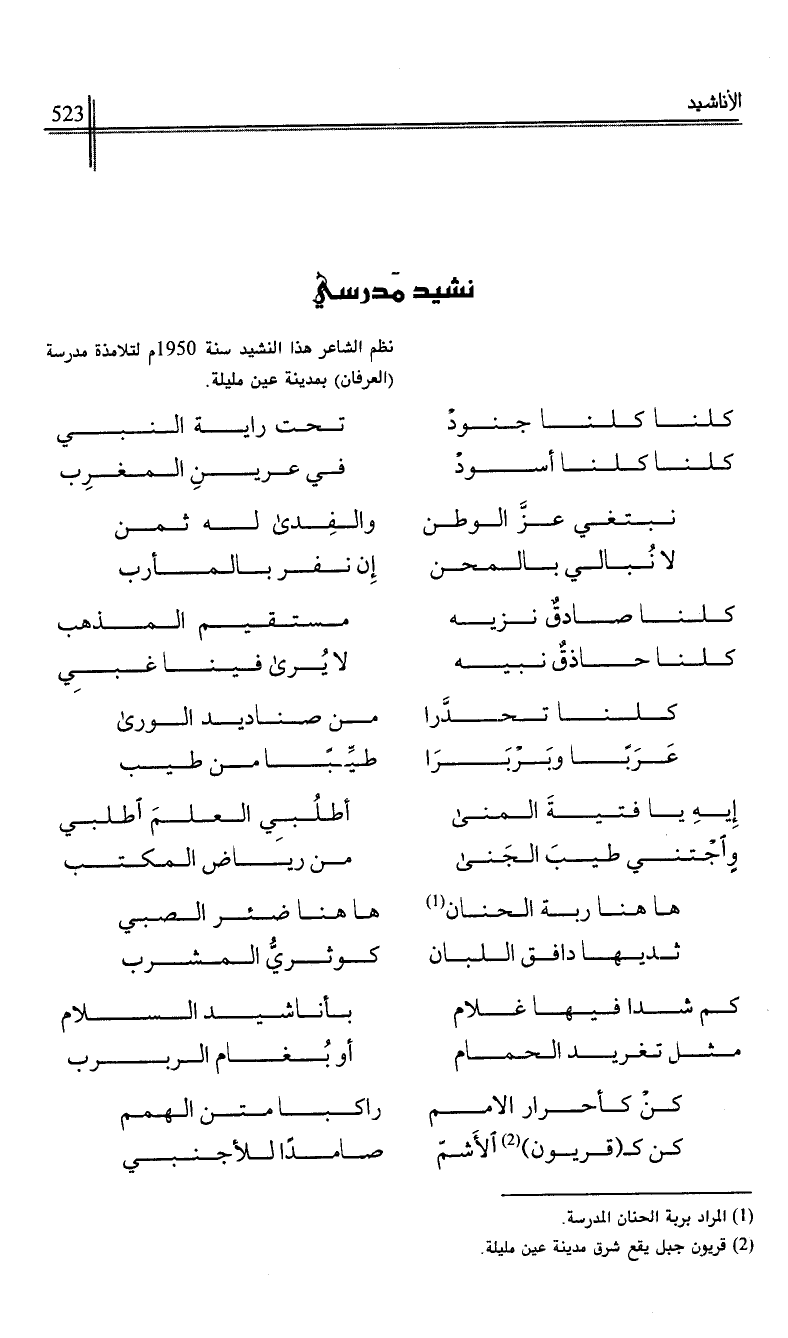 الأناشيد
523
نشيد مَدرسي
نظم الشاعر هذا النشيد سنة 1950م لتلامذة مدرسة
(العرفان) بمدينة عين مليلة.
كلنا كلنا جنودْ تحت راية النبي
كلنا كلنا أسودْ في عرينِ المغرِب
نبتغي عزَّ الوطن والفِدىٰ له ثمن
لا نُبالي بالمحن إن نفر بالمأرب
كلنا صادقٌ نزيه مستقيم المذهب
كلنا حاذقٌ نبيه لا يُرىٰ فينا غبِي
كلنا تحدَّرا من صناديد الورىٰ
عَرَبًا وبَرْبَرَا طيِّبًا من طيب
إيهِ يا فتيةَ المنىٰ أطلُبِي العلمَ ٱطلبي
وٱجْتني طيبَ الجَنىٰ من رياض المكتب
ها هنا ربة الحنان(1) ها هنا ضئر الصبي
ثديها دافق اللبان كوثريُّ المشرب
كم شدا فيها غلام بأناشيد السلام
مثل تغريد الحمام أو بُغام الربرب
كنْ كأحرار الامم راكبا متن الهمم
كن كـ(قريون)(2) ٱلأَشمّ صامدًا للأجنبي
(1) المراد بربة الحنان المدرسة.
(2) قريون جبل يقع شرق مدينة عين مليلة.